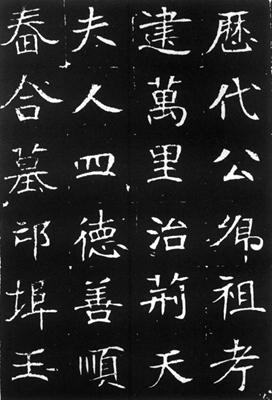 歷代公卿祖考
建萬里治荊天
夫人四德善順
墓邙埠